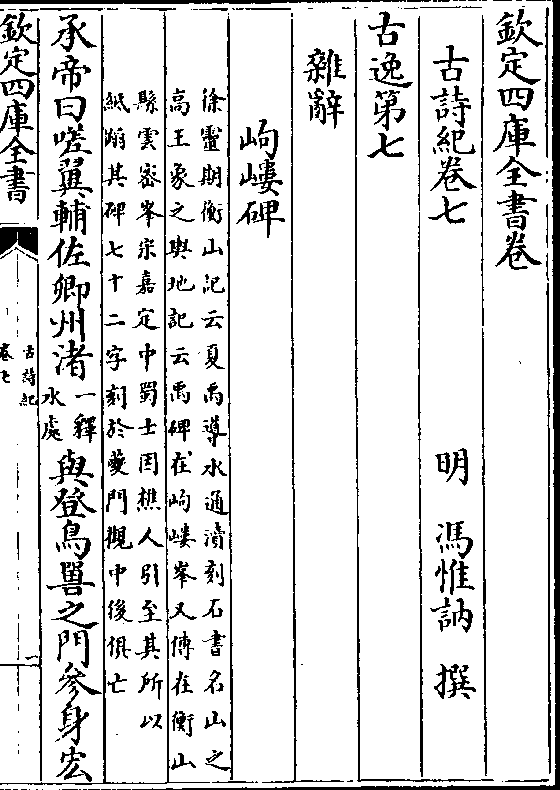 欽定四庫全書卷
古詩紀卷七
明 馮惟訥 撰
古逸第七
雜辭
岣嶁碑
徐靈期衡山記云夏禹導水通瀆刻石書名山之
高王象之輿地記云禹碑在岣嶁峯又傳在衡山
縣雲密峯宋嘉定中蜀士因樵人引至其所以
紙搨其碑七十二字刻於夔門觀中後俱亡
承帝曰嗟翼輔佐卿州渚
一釋
水處
與登鳥獸之門參身宏
欽定四庫全書
古詩紀
卷七
一